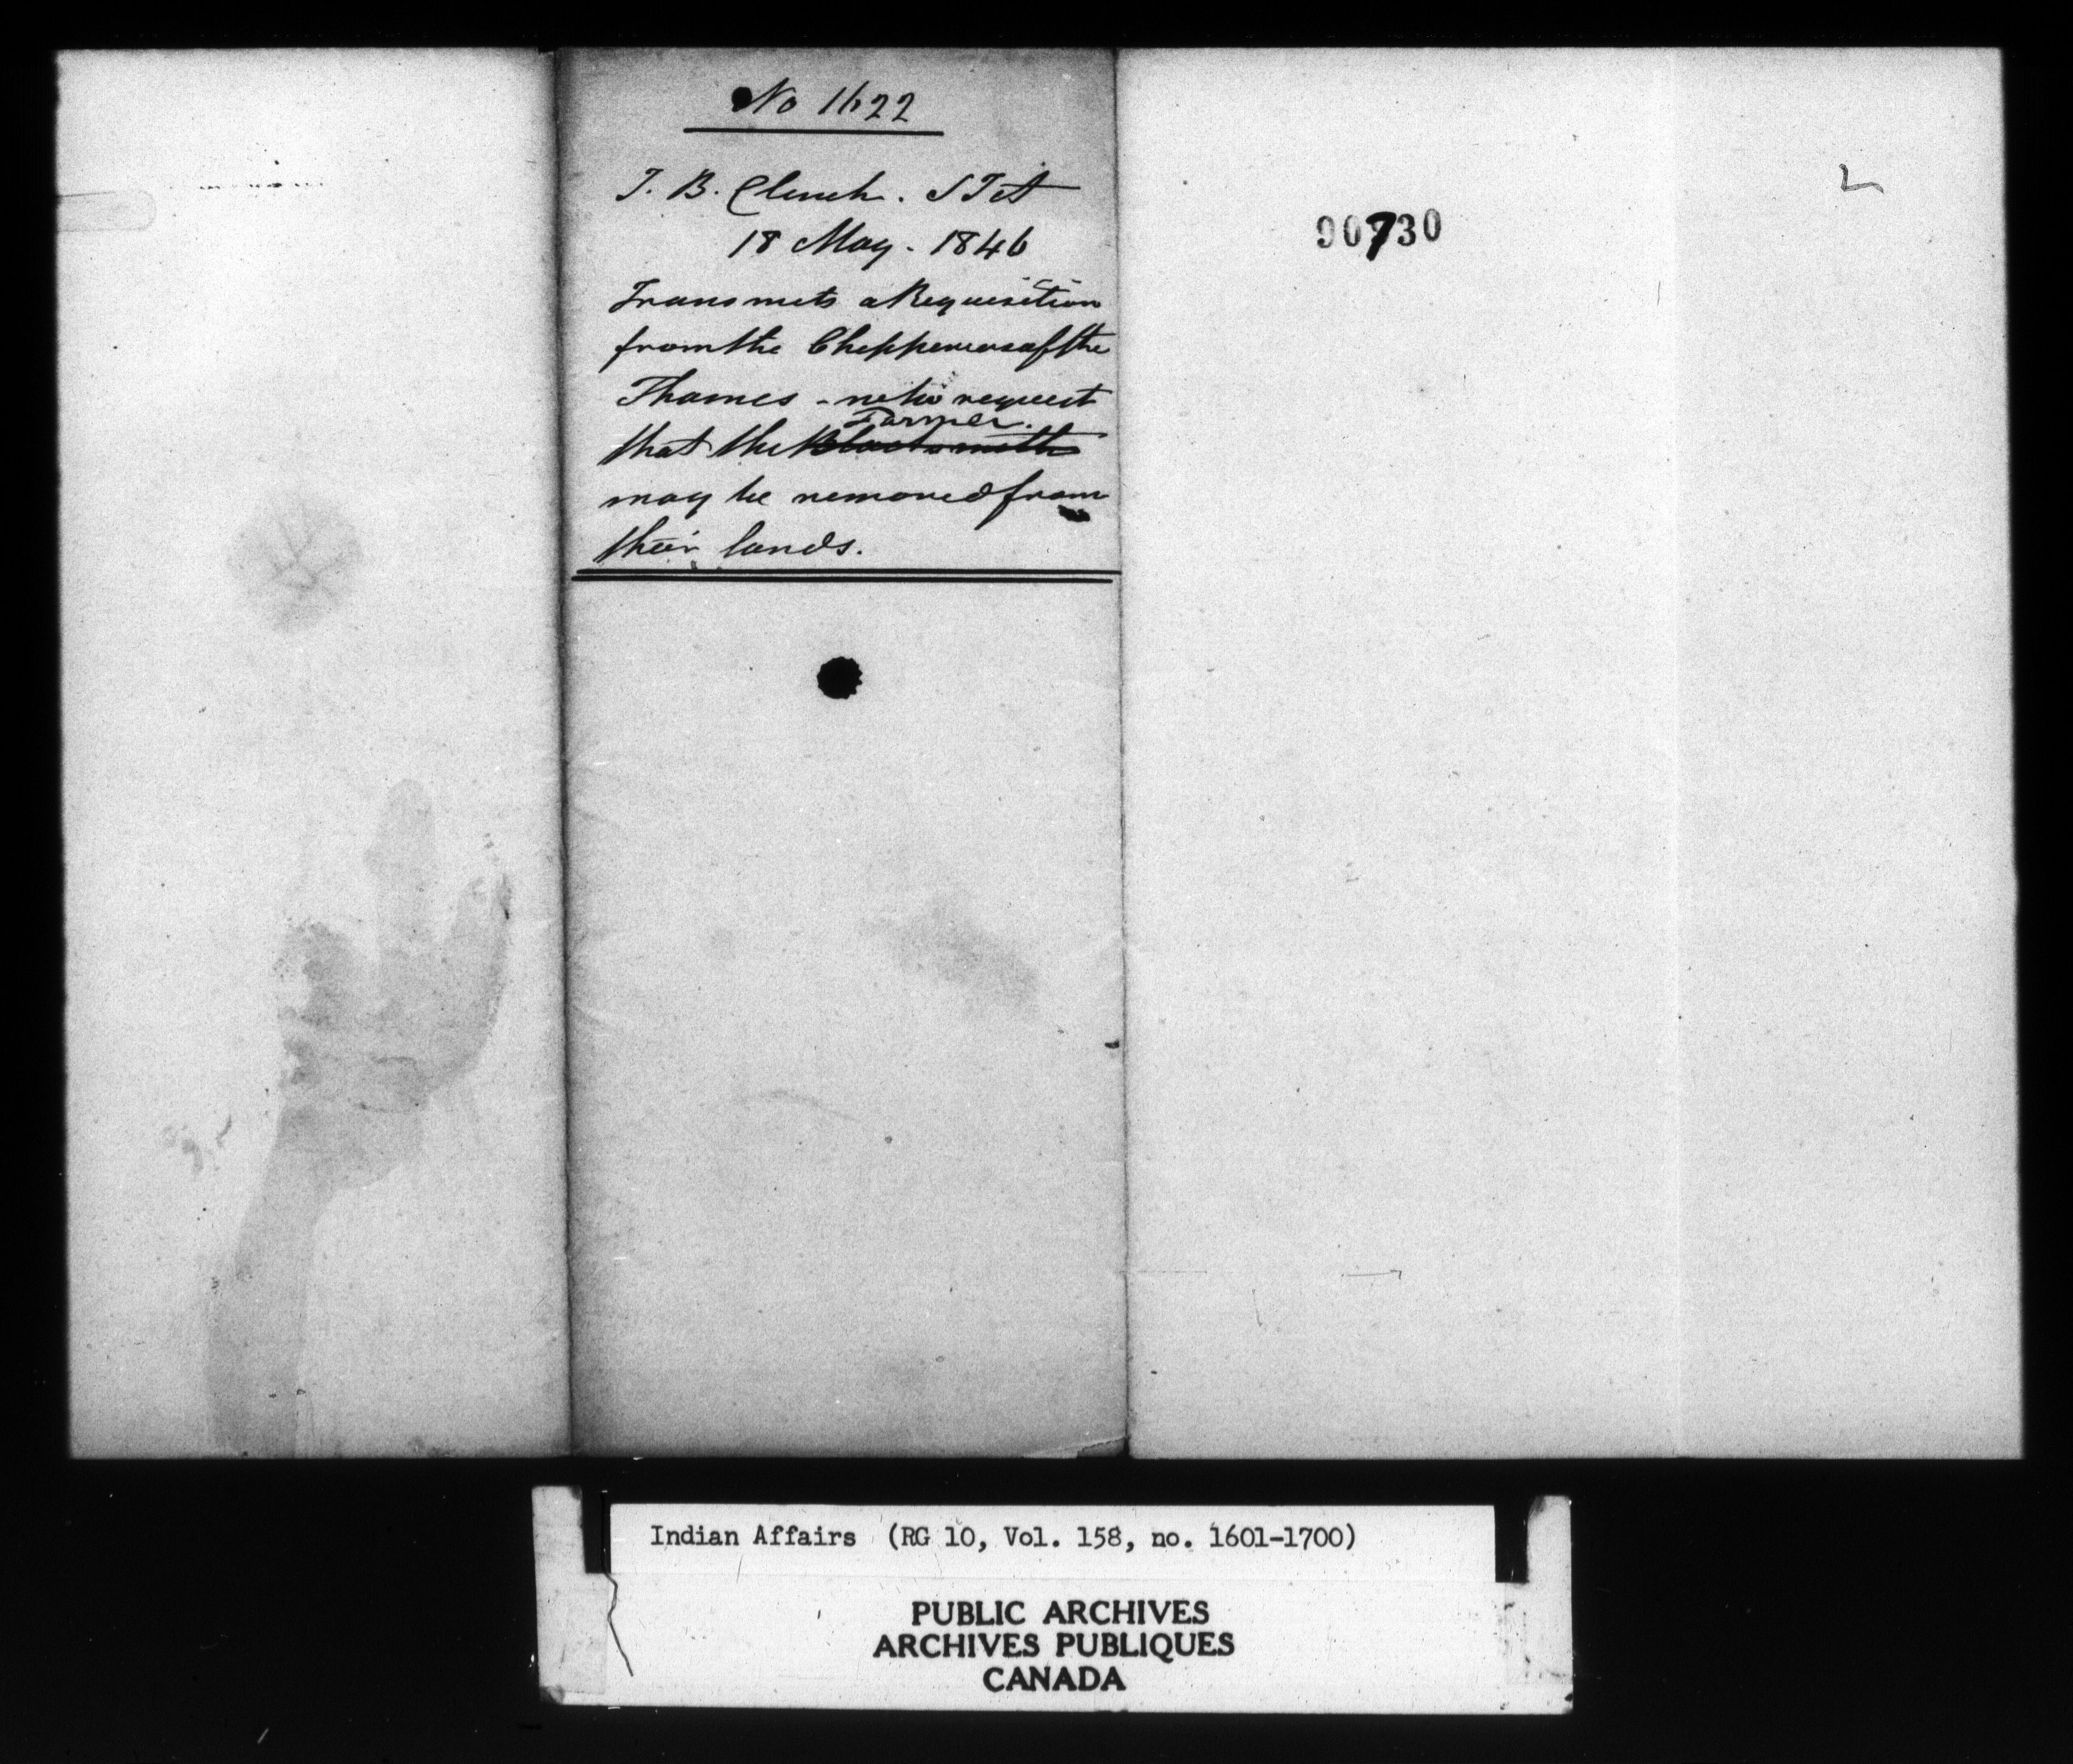 No 1622
J. B. Clench. S I A
18 May. 1846
Transmits a Requisition
from the Chippewas of the
Thames - who request
Farmer.
that the Blacksmith
may be removed from
their lands.
90730
Indian Affairs (RG 10, Vol. 158, no. 1601-1700)
PUBLIC ARCHIVES
ARCHIVES PUBLIQUES
CANADA